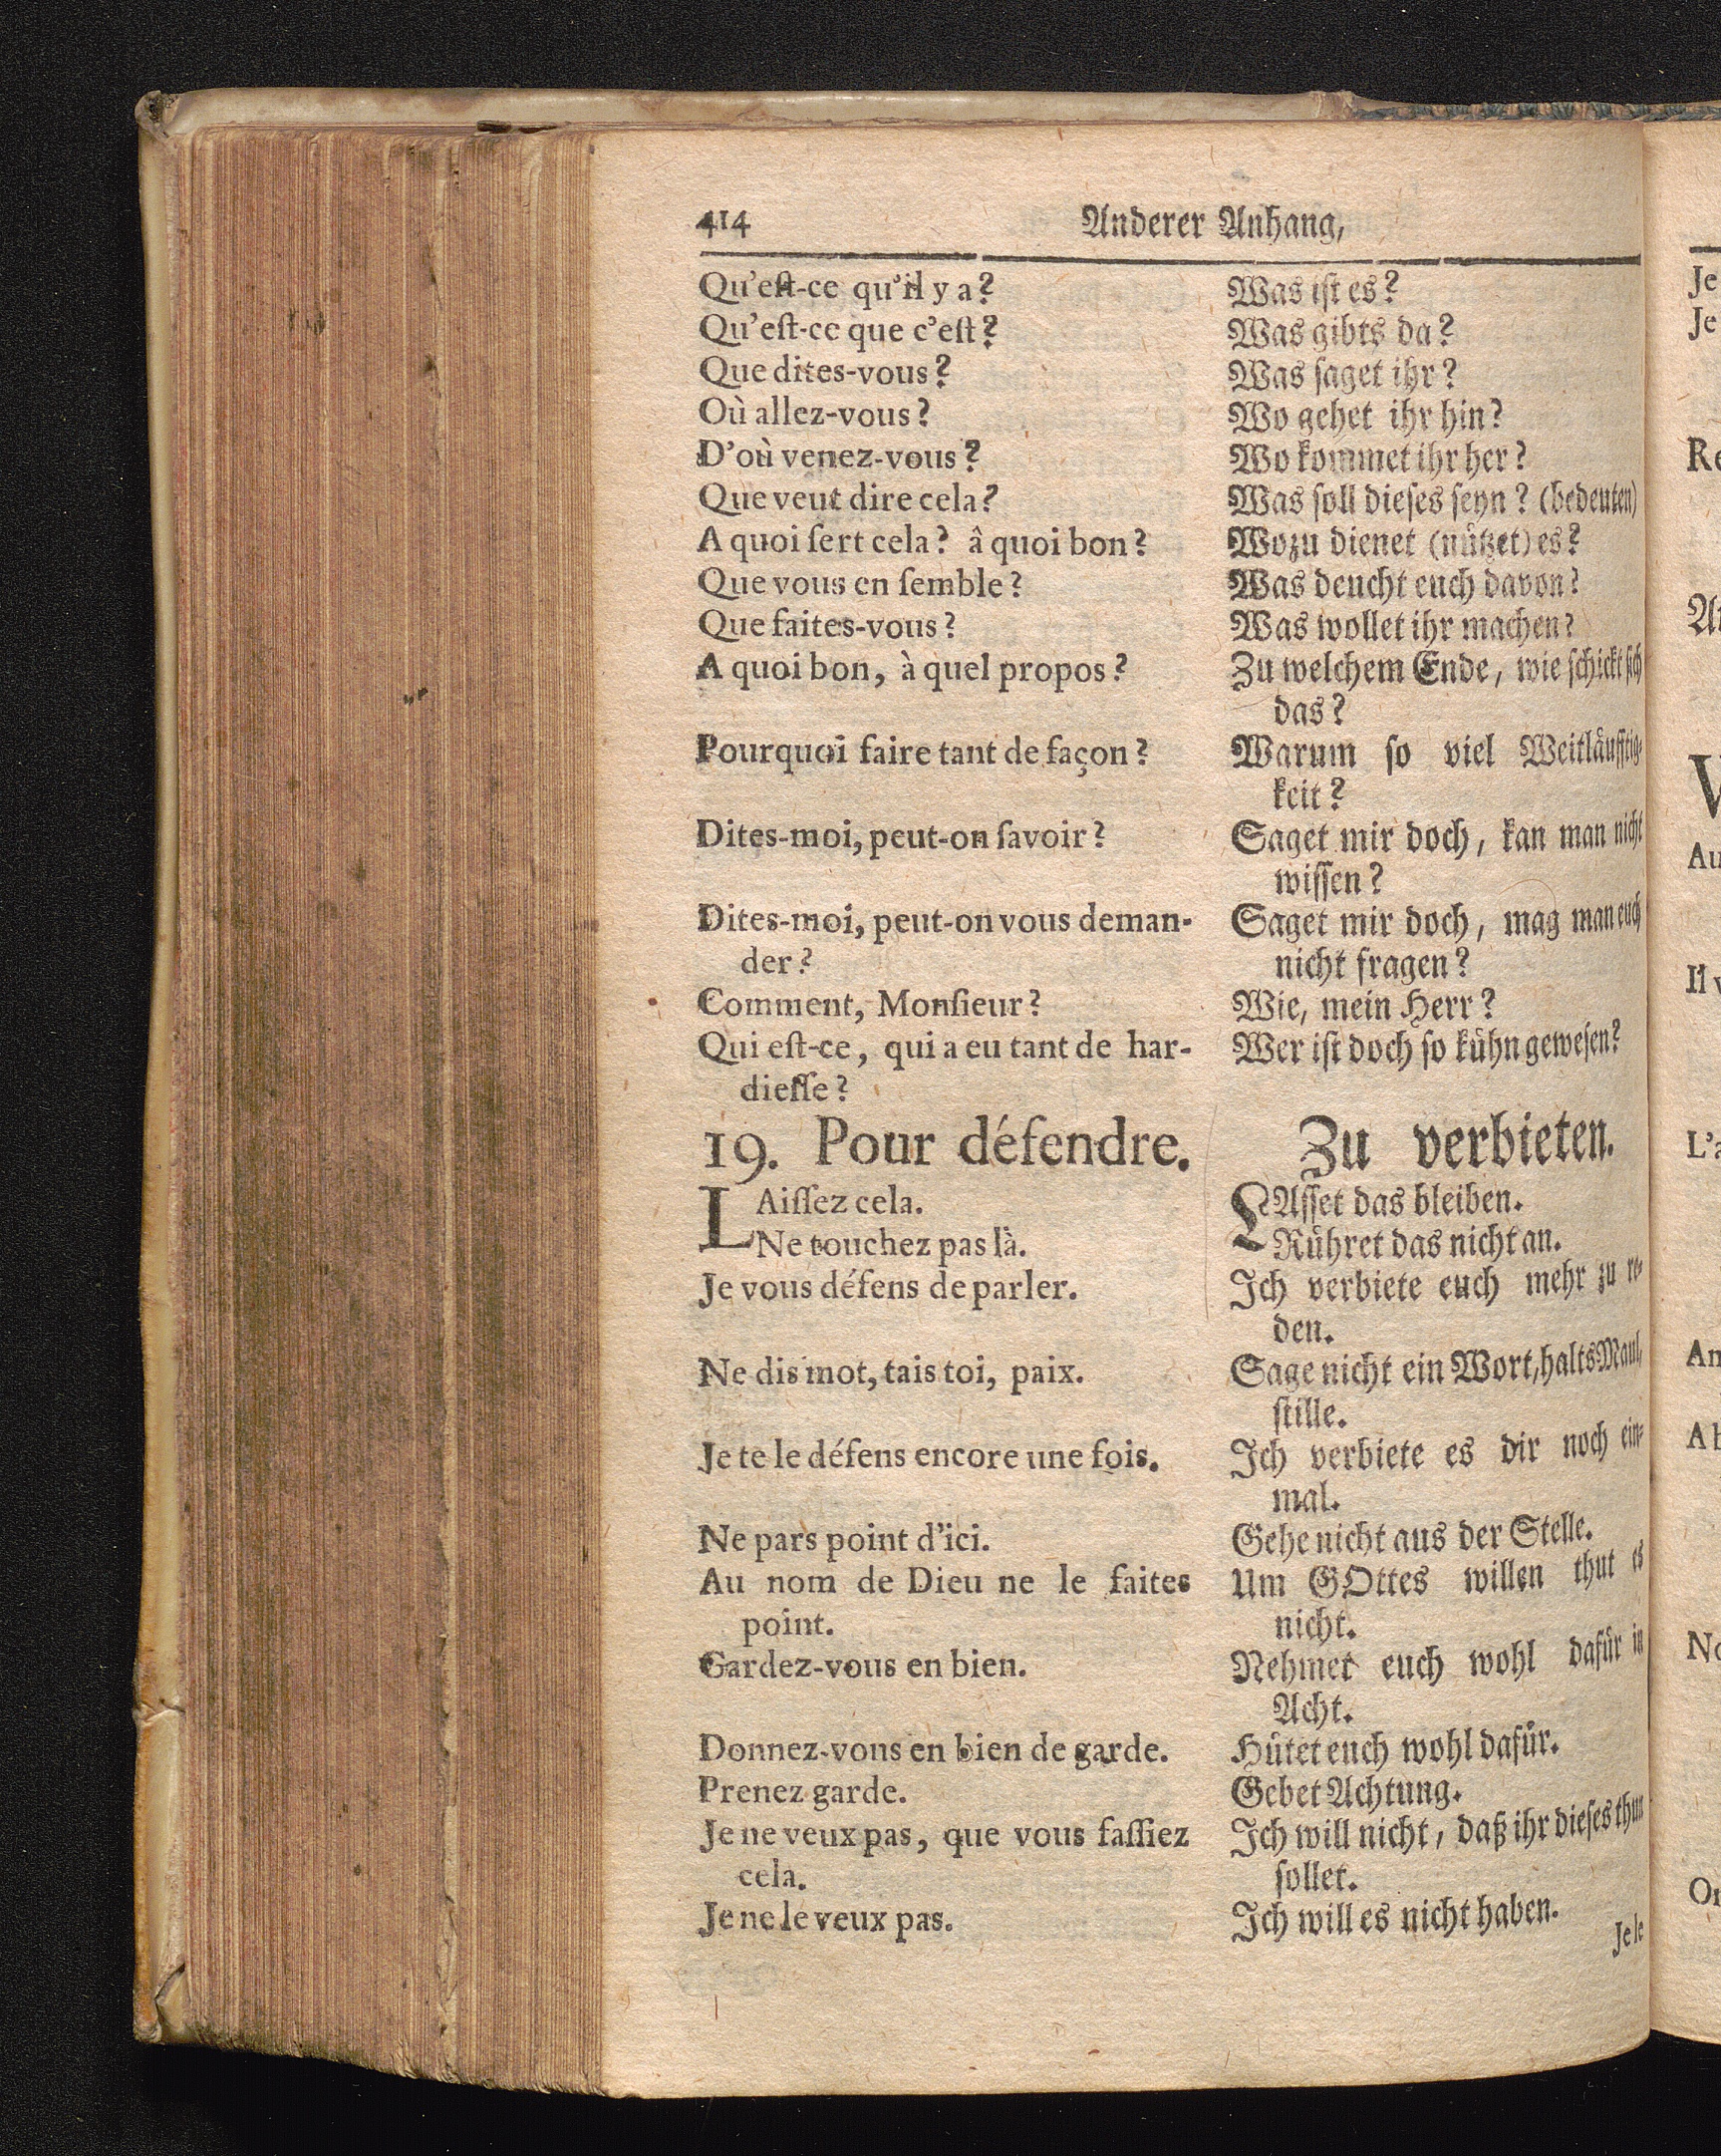 414 Anderer Anhang,
Qu'eſt-ce qu'il y a?
Qu'eſt-ce que c'eſt?
Que dites-vous?
Où allez-vous?
D'où venez-vous?
Que veut dire cela?
A quoi ſert cela? â quoi bon?
Que vous en ſemble?
Que faites-vous?
A quoi bon, à quel propos?
Pourquoi faire tant de façon?
Dites-moi, peut-on ſavoir?
Dites-moi, peut-on vous deman-
der?
Comment, Monſieur?
Qui eſt-ce, qui a eu tant de har-
dieſſe?
19. Pour défendre.
LAiſſez cela.
Ne touchez pas là.
Je vous défens de parler.
Ne dis mot, tais toi, paix.
Je te le défens encore une fois.
Ne pars point d'ici.
Au nom de Dieu ne le faites
point.
Gardez-vous en bien.
Donnez-vous en bien de garde.
Prenez garde.
Je ne veux pas, que vous faſſiez
cela.
Je ne le veux pas.
Was iſt es?
Was gibts da?
Was ſaget ihr?
Wo gehet ihr hin?
Wo kommet ihr her?
Was ſoll dieſes ſeyn? (bedeuten)
Wozu dienet (nuͤtzet) es?
Was deucht euch davon?
Was wollet ihr machen?
Zu welchem Ende, wie ſchickt ſich
das?
Warum ſo viel Weitlaͤufftig-
keit?
Saget mir doch, kan man nicht
wiſſen?
Saget mir doch, mag man euch
nicht fragen?
Wie, mein Herr?
Wer iſt doch ſo kuͤhn geweſen?
Zu verbieten.
LAſſet das bleiben.
Ruͤhret das nicht an.
Ich verbiete euch mehr zu re-
den.
Sage nicht ein Wort, halts Maul,
ſtille.
Ich verbiete es dir noch ein-
mal.
Gehe nicht aus der Stelle.
Um GOttes willen thut es
nicht.
Nehmet euch wohl dafuͤr in
Acht.
Huͤtet euch wohl dafuͤr.
Gebet Achtung.
Ich will nicht, daß ihr dieſes thun
ſollet.
Ich will es nicht haben.
Je le
Je
Je